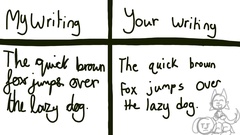 My Writing
Your writing
The quick brown
fox jumps over
the lazy dog.
The quick brown
Fox jumps over
the lazy dog.